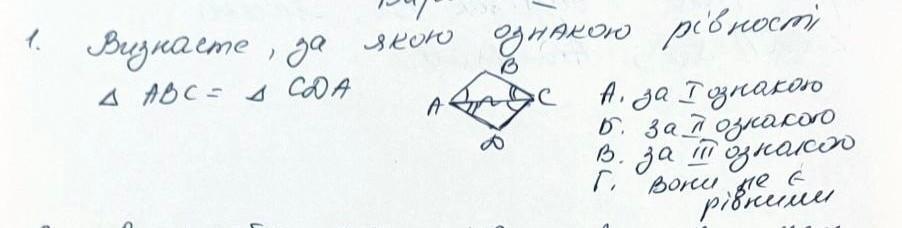 1. Визнасте, за якою ознакою рівності
Δ ABC = Δ CDA
B
A
C
D
А. за I ознакою
Б. за II ознакою
В. за III ознакою
Г. вони не є
рівними